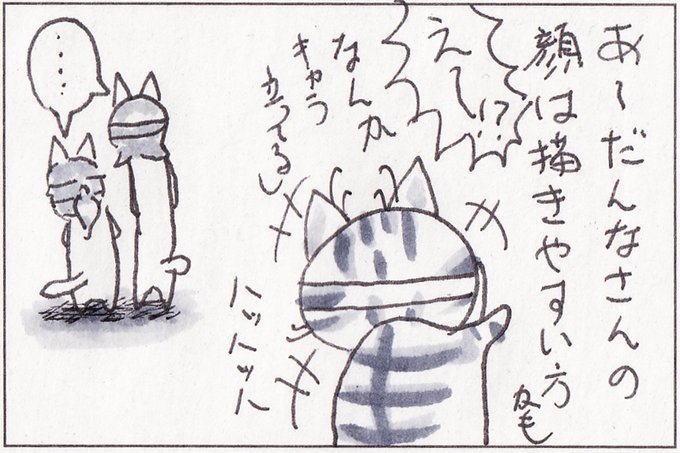 あ〜だんなさんの
顔は描きやすい方
かも
えー!?
なんか
キャラ
立ってるし
ハッハッハ
……